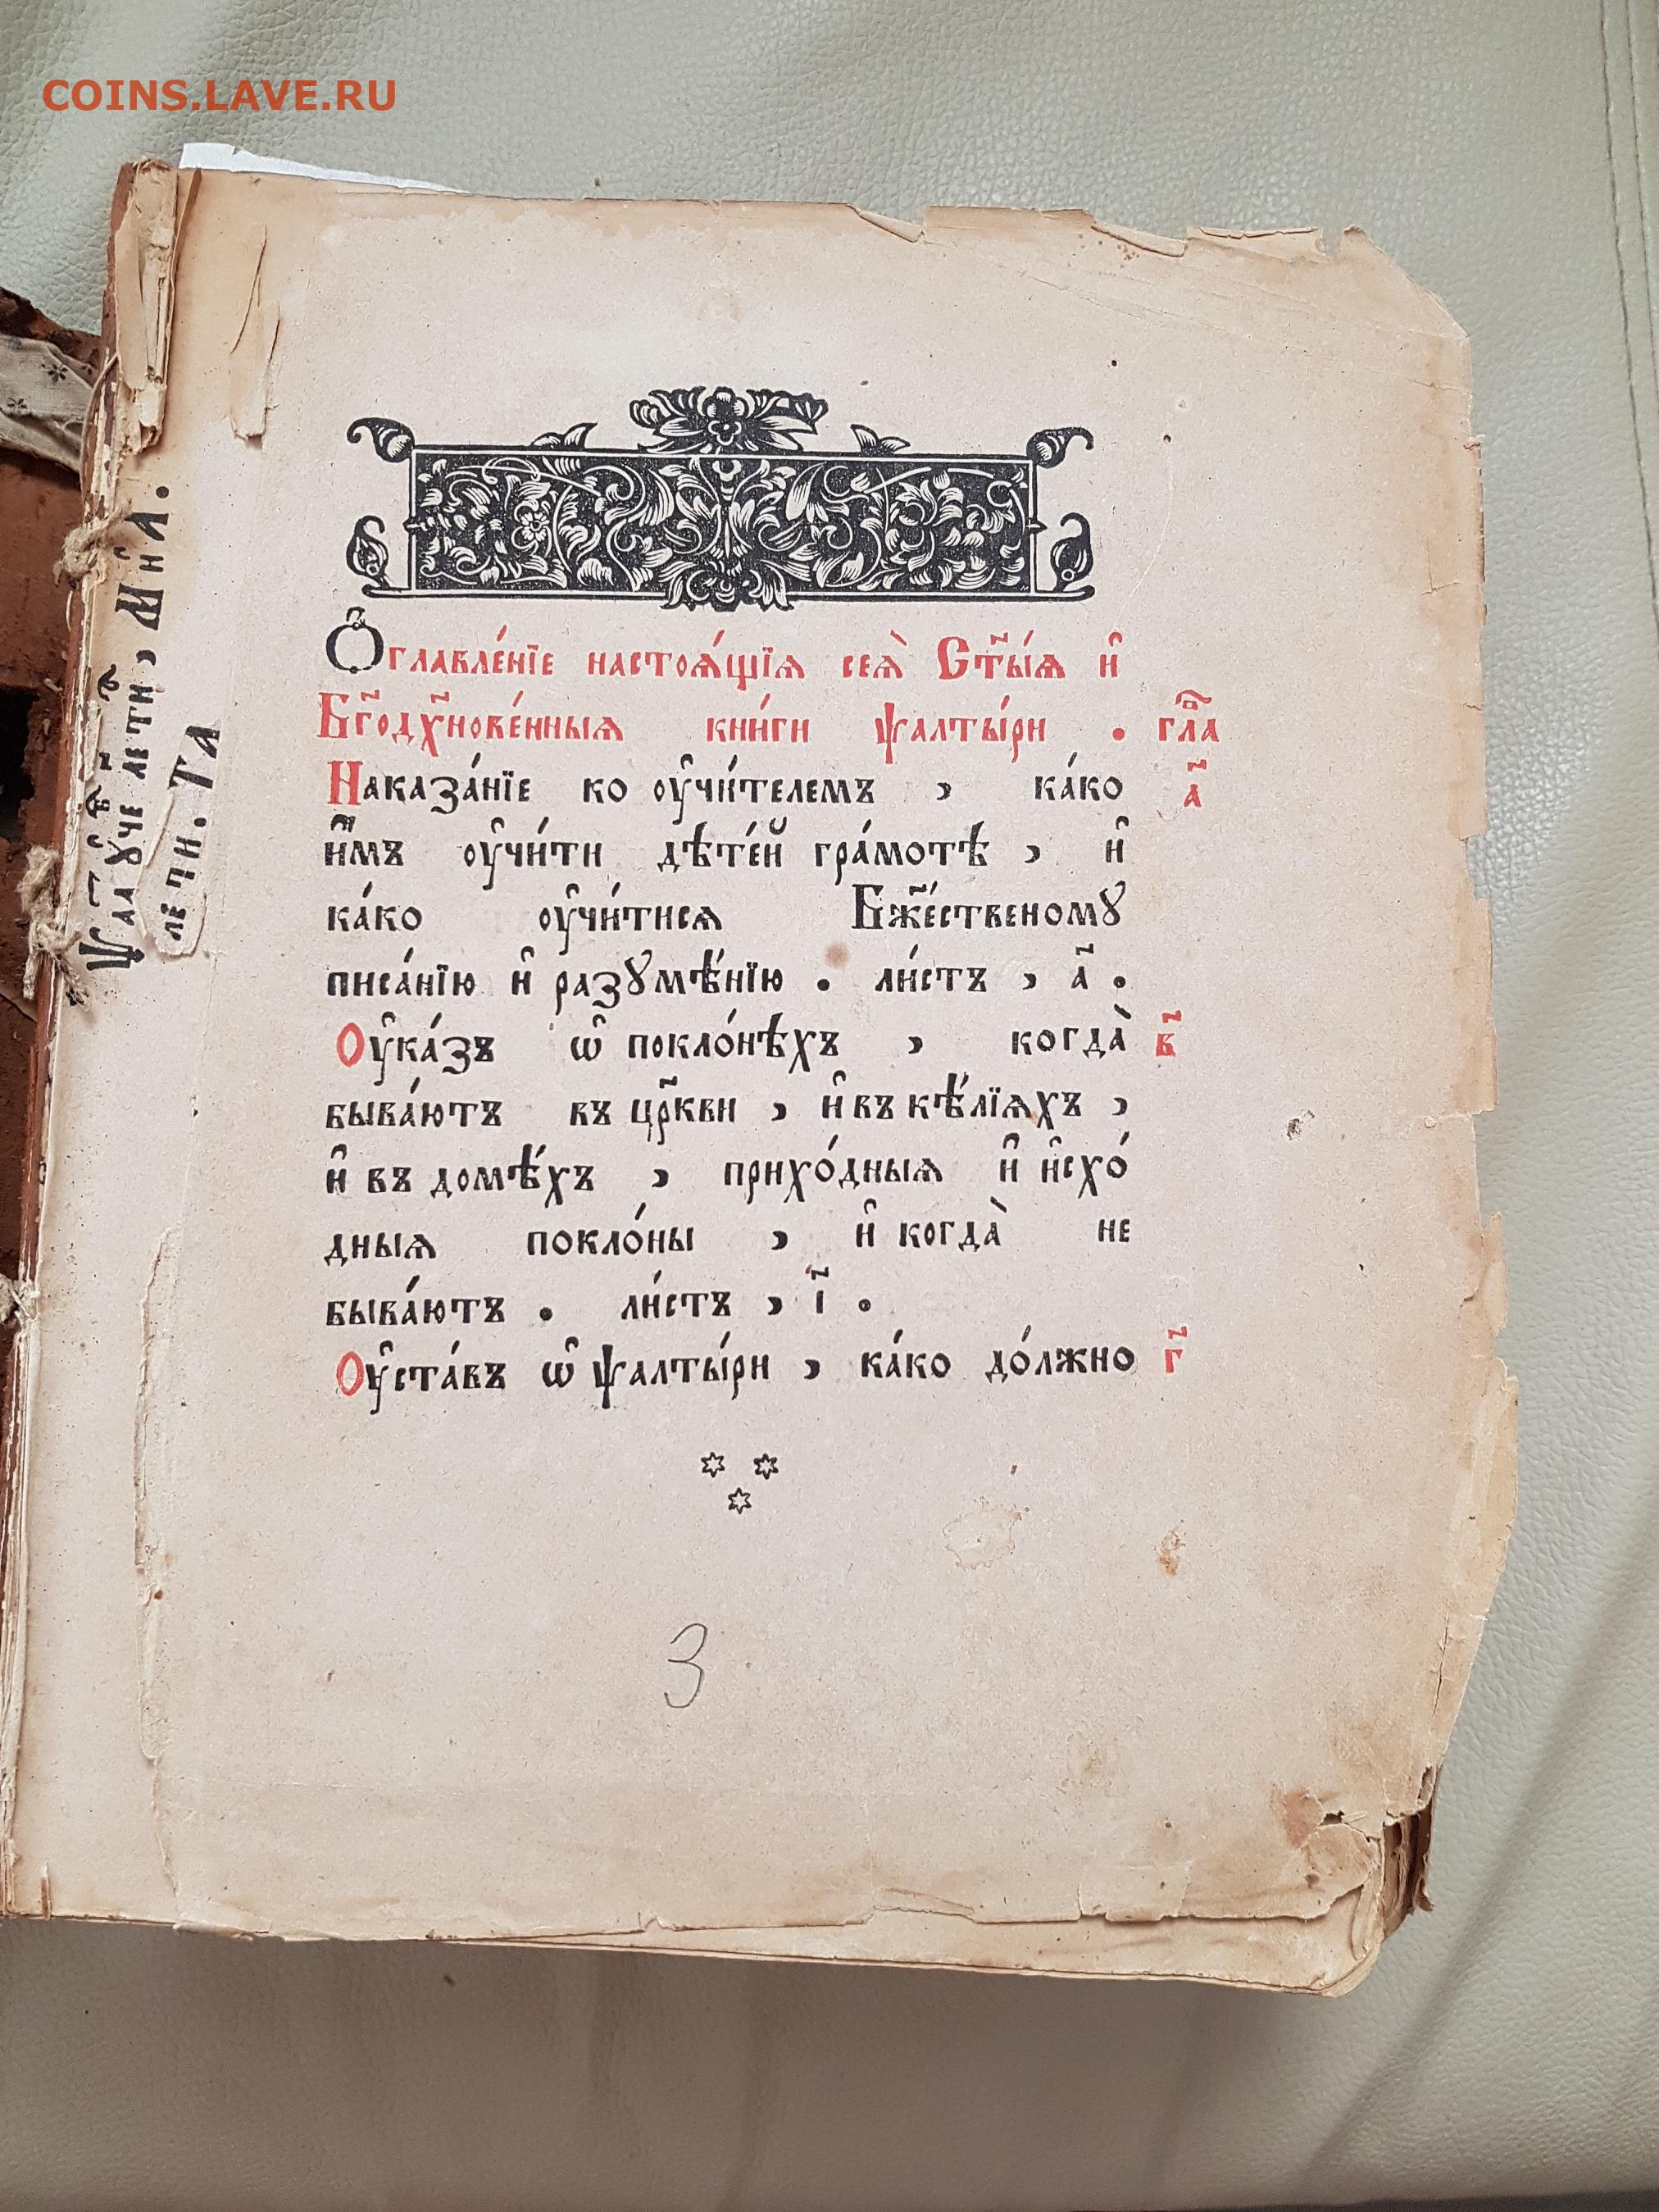 COINS.LAVE.RU
Ѻ҆главле́нїе настоѧ́щїѧ сеѧ̀ Ст҃ы́ѧ и҆
Бг҃одх҃нове́нныѧ кни́ги ѱалты́ри . гла
Наказа́нїе ко ᲂу҆чи́телемъ , ка́ко а҃
и҆̀мъ ᲂу҆чи́ти дѣте́й гра́мотѣ , и҆
ка́ко ᲂу҆чи́тисѧ Бж҃е́ственомꙋ
писа́нїю и҆ разꙋмѣ́нїю . ли́стъ , а҃ .
Оу҆ка́зъ ѡ҆ покло́нѣхъ , когда̀ в҃
быва́ютъ въ цр҃кви , и҆ въ кѣ́лїѧхъ ,
и҆ въ домѣ́хъ , прихо́дныѧ и҆ и҆схо́
дныѧ покло́ны , и҆ когда̀ не
быва́ютъ . ли́стъ , і҃ .
Оу҆ста́въ ѡ҆ ѱалты́ри , ка́ко до́лжно г҃
3